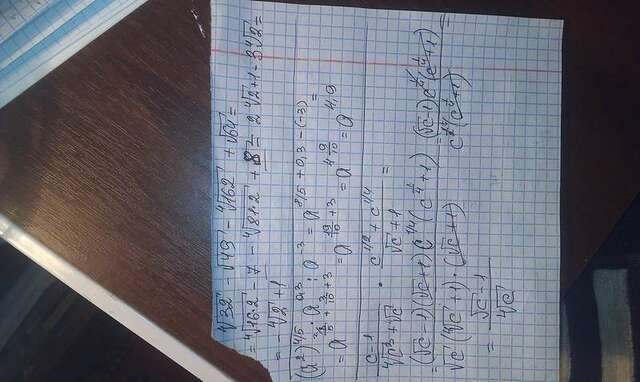 ∜32 - √49 - ∜162 + √64 =
= ∜16·2 - 7 - ∜81·2 + 8 = 2∜2 + 1 - 3∜2 =
= -∜2 + 1
(a²)^4/5 · a^0,3 : a^-3 = a^8/5 + 0,3 - (-3) =
= a^16/10 + 3/10 + 3 = a^19/10 + 3 = a^4 9/10 = a^4,9
c-1 / ∜c³ + √c · c^1/2 + c^1/4 / √c + 1 =
= (√c - 1)(√c + 1) c^1/4 (c^1/4 + 1) / √c (∜c + 1) · (√c + 1) = (√c - 1) c^1/4 (c^1/4 + 1) / c^2/4 (c^1/4 + 1) =
= √c - 1 / ∜c